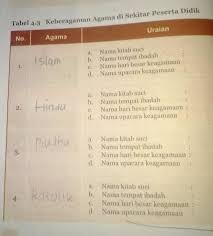 Tabel 4.3 Keberagaman Agama di Sekitar Peserta Didik
No. Agama Uraian
1. Islam
a. Nama kitab suci :
b. Nama tempat ibadah :
c. Nama hari besar keagamaan :
d. Nama upacara keagamaan :
2. Hindu
a. Nama kitab suci :
b. Nama tempat ibadah :
c. Nama hari besar keagamaan :
d. Nama upacara keagamaan :
3.
a. Nama kitab suci :
b. Nama tempat ibadah :
c. Nama hari besar keagamaan :
d. Nama upacara keagamaan :
4.
a. Nama kitab suci :
b. Nama tempat ibadah :
c. Nama hari besar keagamaan :
d. Nama upacara keagamaan :